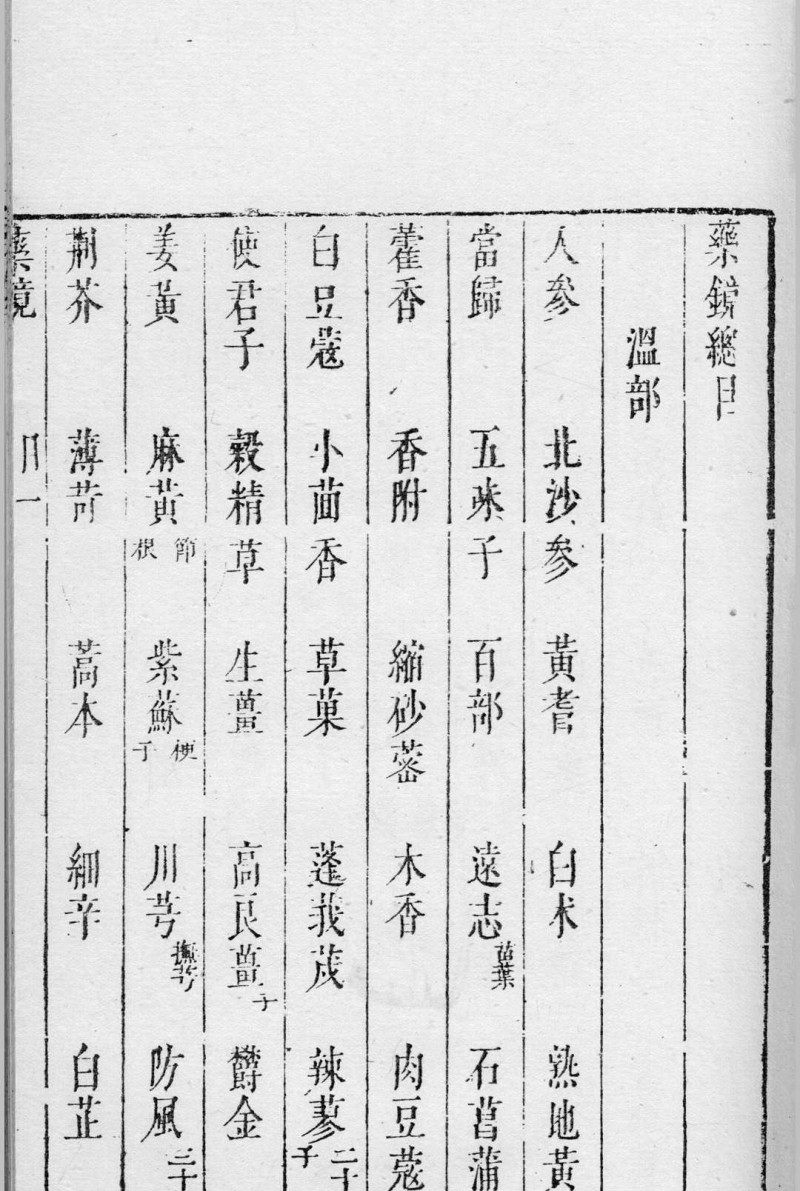 藥鏡總目
溫部
人參 北沙參 黃耆 白朮 熟地黃
當歸 五味子 百部 遠志 苗葉 石菖蒲
藿香 香附 縮砂蔤 木香 肉豆蔻
白豆蔻 小茴香 草菓 蓬莪茂 辣蓼 子 二十
使君子 穀精草 生薑 高良薑 子 欝金
姜黃 麻黃 節 根 紫蘇 梗 子 川芎 撫芎 防風 三十
荆芥 薄苛 藁本 細辛 白芷
藥鏡 目 一